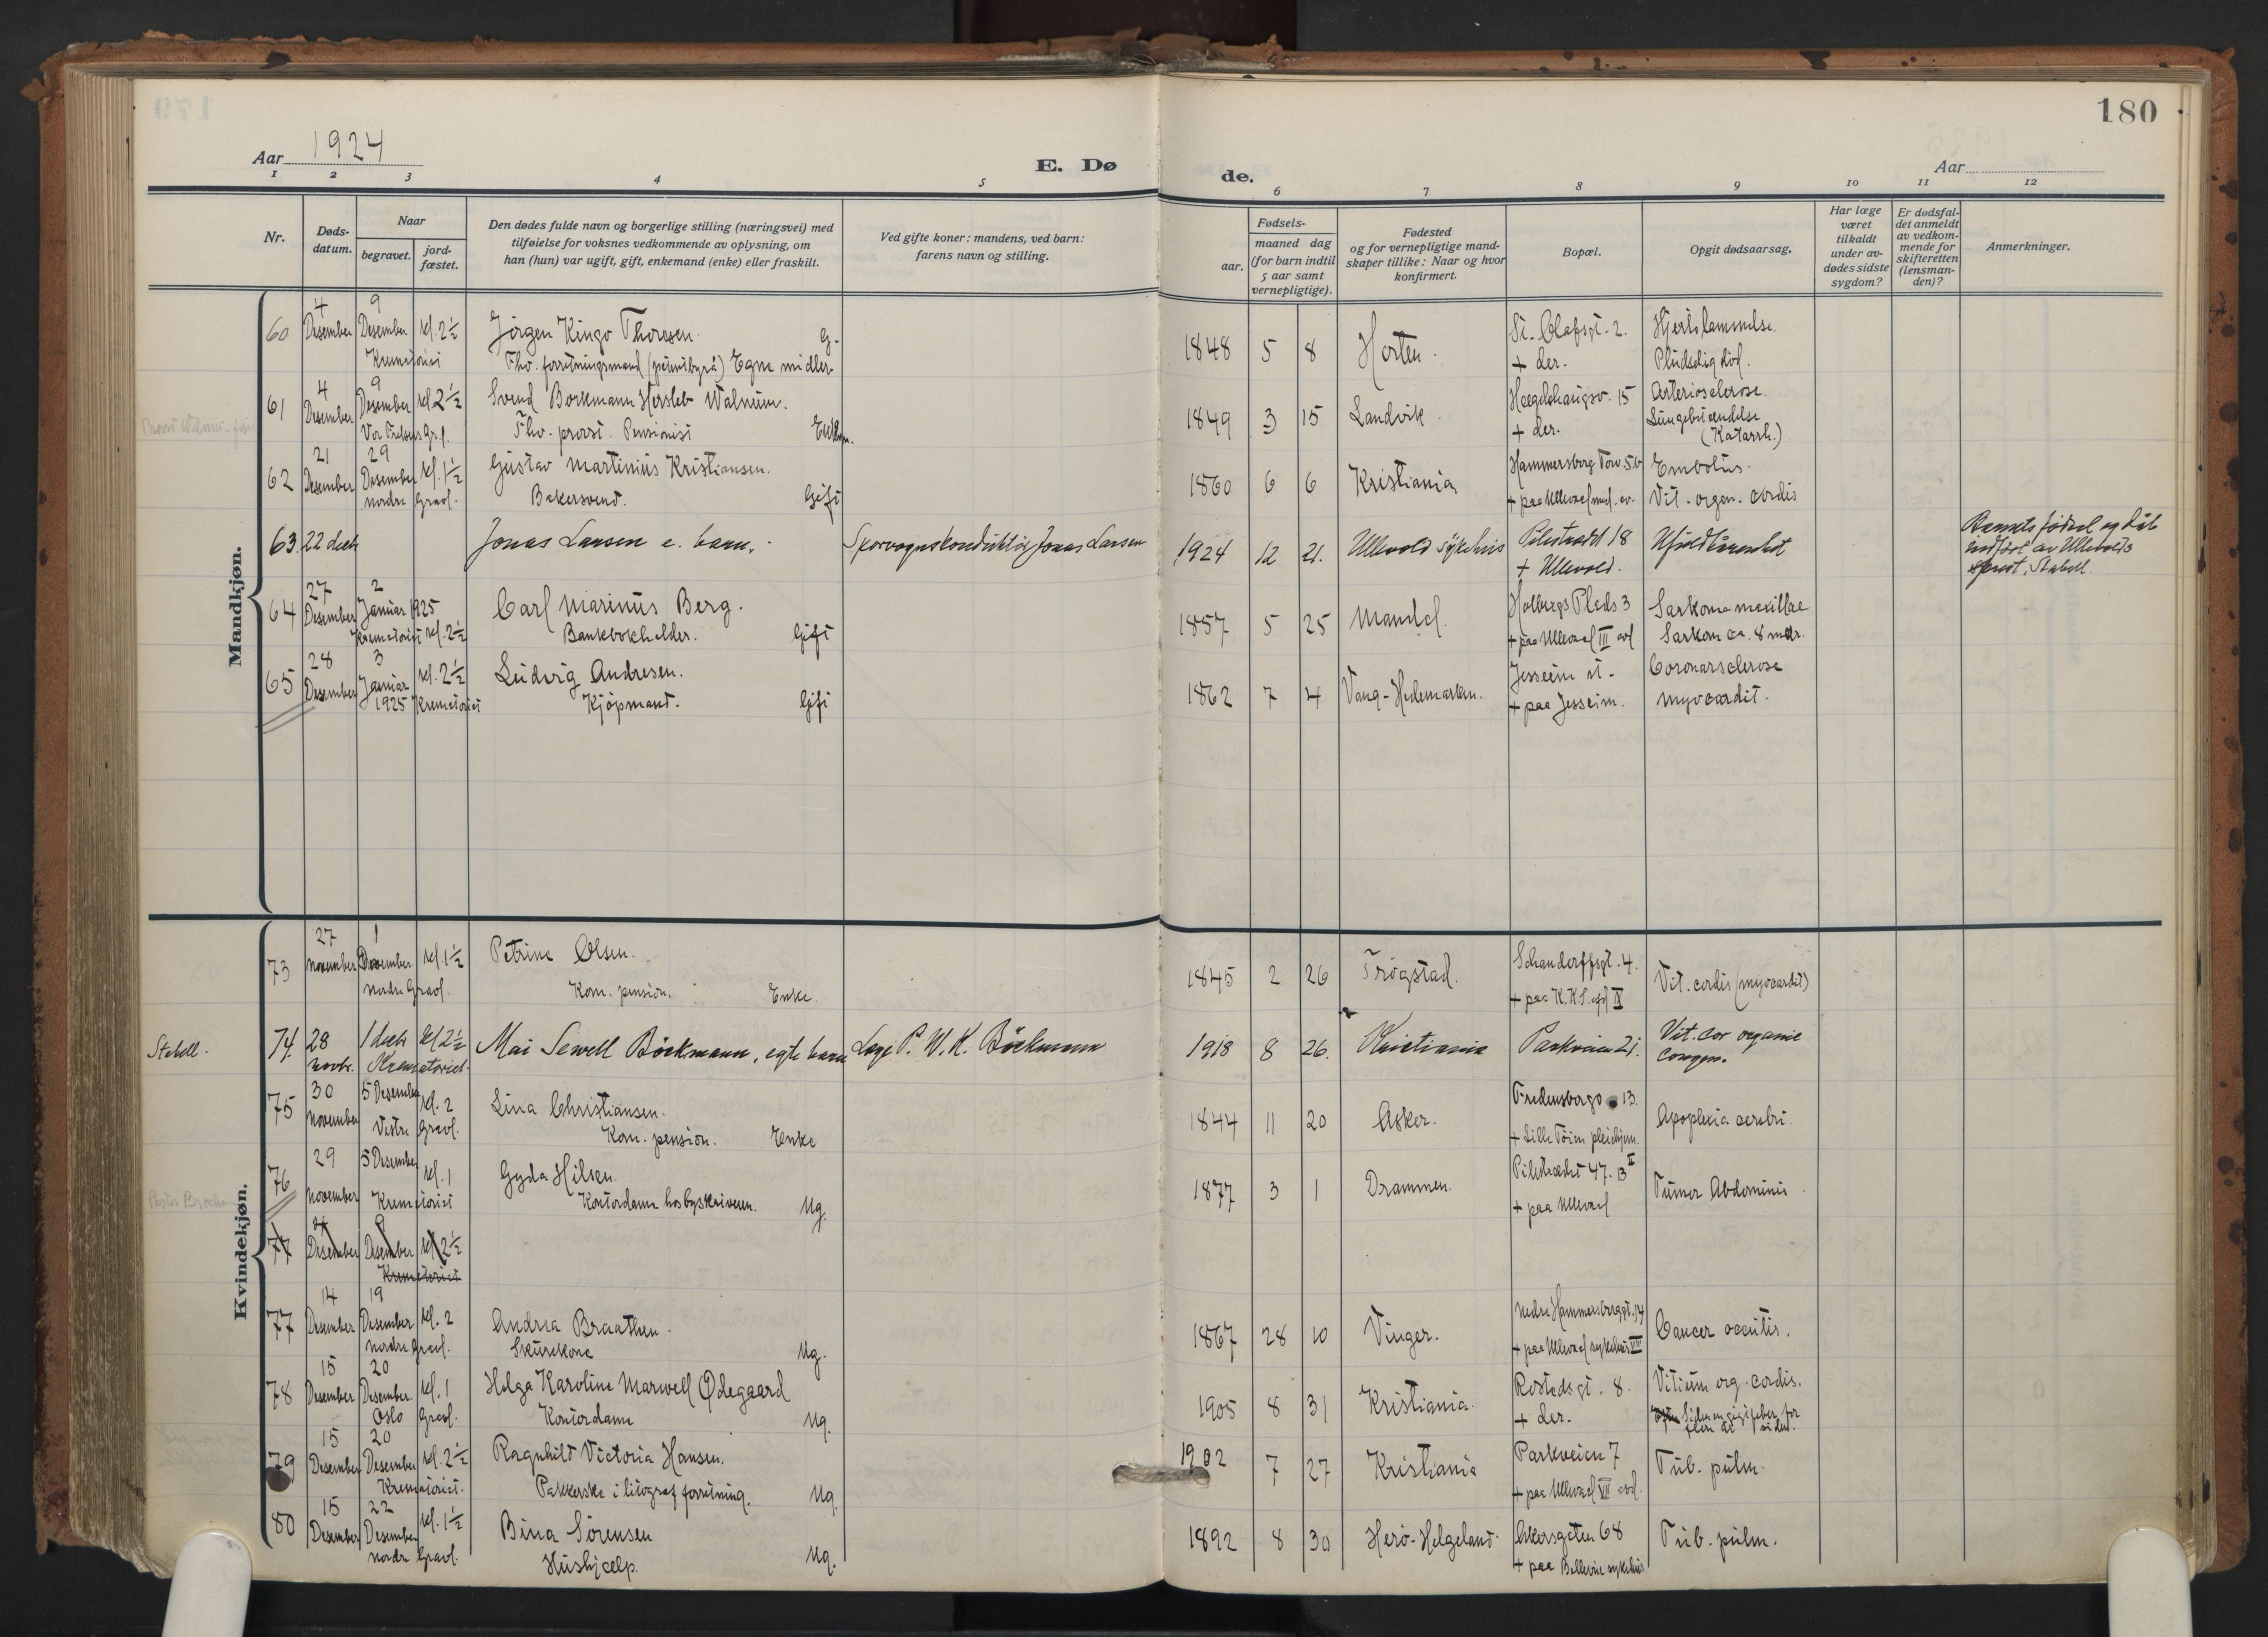 180
Aar 1924
E. Dø
de.
Aar
1 2 3 4 5 6 7 8 9 10 11 12
Nr.
Døds-
datum.
Naar
begravet.
jord-
fæstet.
Den dødes fulde navn og borgerlige stilling (næringsvei) med
tilføielse for voksnes vedkommende av oplysning, om
han (hun) var ugift, gift, enkemand (enke) eller fraskilt.
Ved gifte koner: mandens, ved barn:
farens navn og stilling.
Fødsels-
aar.
maaned dag
(for barn indtil
5 aar samt
vernepligtige).
Fødested
og for vernepligtige mand-
skaper tillike: Naar og hvor
konfirmert.
Bopæl.
Opgit dødsaarsag.
Har læge
været
tilkaldt
under av-
dødes sidste
sygdom?
Er dødsfal-
det anmeldt
av vedkom-
mende for
skifteretten
(lensman-
den)?
Anmerkninger.
Mandkjøn.
60 4 Desember 9 Desember kl. 2½ Krematoriet
Jørgen Kingo Thoresen. G.
Fhv. forretningsmand (patentbyrå) Egne midler.
1848 5 8 Horten. St. Olafsgt. 2. + der. Hjertelammelse. Pludselig død.
61 4 Desember 9 Desember kl. 2½ Vor Frelsers Grl.
Svend Borkmann Hersleb Walnum.
Fhv. provst. Pensionist Enkem.
1849 3 15 Landvik Hægdehaugsv. 15 + der. Arteriosclerose. Lungebetændelse (Katarrh.)
62 21 Desember 29 Desember kl. 1½ nordre Gravl.
Gustav Martinius Kristiansen.
Bakersvend. Gift
1860 6 6 Kristiania Hammersborg Torv 5b + paa Ullevaal med. av. Embolus. Vit. organ. cordis
63. 22 decb
Jonas Larsen e. barn.
Sporvognskonduktør Jonas Larsen
1924 12 21. Ullevold sykehus Pilestrædet 18 + Ullevold. Ufuldbaarenhet
Barnets fødsel og dåb
indført av Ullevolds
prest, Stabell.
64 27 Desember 2 Januar 1925 Krematoriet kl. 2½
Carl Marinius Berg.
Bankbokholder. Gift
1857 5 25 Mandal. Holbergs Plads 3 + paa Ullevaal III avd. Sarkoma maxillae Sarkom ca. 8 mdr.
65 28 Desember 3 Januar 1925 kl. 2½ Krematoriet
Ludvig Andresen.
Kjøpmand. Gift
1862 7 4 Vang-Hedemarken. Jesseim st. + paa Jesseim. Coronarsclerose myocardit.
Kvindekjøn.
73 27 November 1 Desember kl 1½ nordre Gravl.
Petrine Olsen.
Kom. pension. Enke.
1845 2 26 Trøgstad. Schandorffsgt. 4. + paa K.K.S. afd IX Vit. cordis (myocardit)
Stabell.
74. 28 novbr. 1 decb kl 2½ Krematoriet.
Mai Sewell Böckmann, egte barn
Læge P. W. K. Böckmann
1918 8 26. Kristiania Parkveien 21. Vit. cor organic congen.
75 30 November 5 Desember kl. 2 Vestre Gravl.
Lina Christiansen.
Kom. pension. Enke
1844 11 20 Asker. Fredensborgv 13. + Lille Tøien pleiehjem. Apoplexia cerebri
76 29 November 5 Desember kl. 1 Krematoriet
Gyda Hilsen.
Kontordame hos byskriveren. Ug.
1877 3 1 Drammen. Pilestrædet 47. B II + paa Ullevaal Tumor Abdominis
77 Desember 9 Desember kl 2½ Krematoriet
77 14 Desember 19 Desember kl. 2 nordre Gravl.
Andrea Braathen.
Skurekone Ug.
1867 28 10 Vinger. Nedre Hammersborggt. 14 + paa Ullevaal sykehus VIII Cancer occultis.
78 15 Desember 20 Desember kl. 1 Oslo Gravl.
Helga Karoline Marwell Ødegaard
Kontordame Ug.
1905 8 31 Kristiania. Rostedsgt. 8. + der. Vitium org. cordis.
79 15 Desember 20 Desember kl. 2½ Krematoriet.
Ragnhild Victoria Hansen.
Pakkerske i litograf forretning. Ug.
1902 7 27 Kristiania Parkveien 7 + paa Ullevaal VII avd. Tub. pulm.
80 15 Desember 22 Desember kl. 1½ nordre Gravl.
Bina Sørensen
Hushjælp. Ug.
1892 8 30 Herø-Helgeland. Akersgaten 68 + paa Bellevue sykehus Tub. pulm.